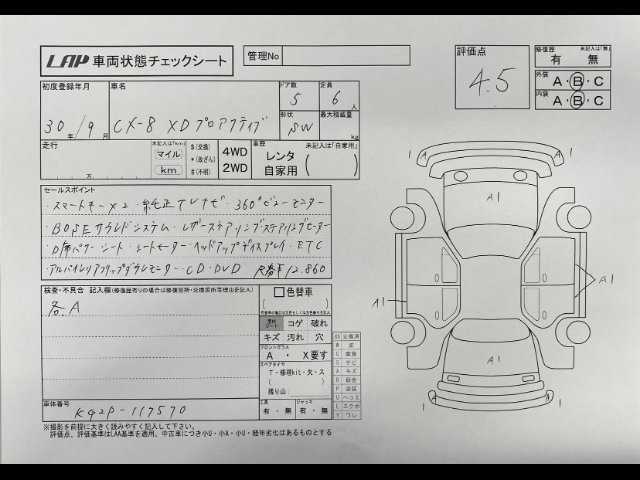 LAP 車両状態チェックシート
管理No
評価点
4.5
修復歴 未記入は「無」
有 無
外装
A・B・C
内装
A・B・C
初度登録年月
30年 / 9月
車名
CX-8 XDプロアクティブ
ドア数
5
定員
6人
形状
SW
最大積載量
kg
走行
万
未記入は「km」
マイル
km
$ (交換)
* (改ざん)
# (不明)
4WD
2WD
車歴 未記入は「自家用」
レンタ
自家用
セールスポイント
・スマートキー×2 ・純正TVナビ ・360°ビューモニター
・BOSEサウンドシステム ・レザーステアリング・ステアリングヒーター
・D席パワーシート・シートヒーター・ヘッドアップディスプレイ・ETC
・CD・DVD
12.860
検査・不具合 記入欄
各A
色替車
コゲ 破れ
キズ 汚れ 穴
フロントガラス
A ・ X要す
スペアタイヤ
T・修理kit・欠・ス
残り山
工具
有・無
ジャッキ
有・無
車体番号
KG2P-117570
※撮影を前提に大きく読みやすく記入して下さい。
評価点、評価基準はLAA基準を適用。中古車につき小U・小A・小U・経年劣化はあるものとする
XX 交換済
W 波
C 腐食
S サビ
A キズ
B 鈑金
P 塗装
U ヘコミ
E エクボ
Y ワレ
A
A
A1
A1
A1
A1
1
1
1
1